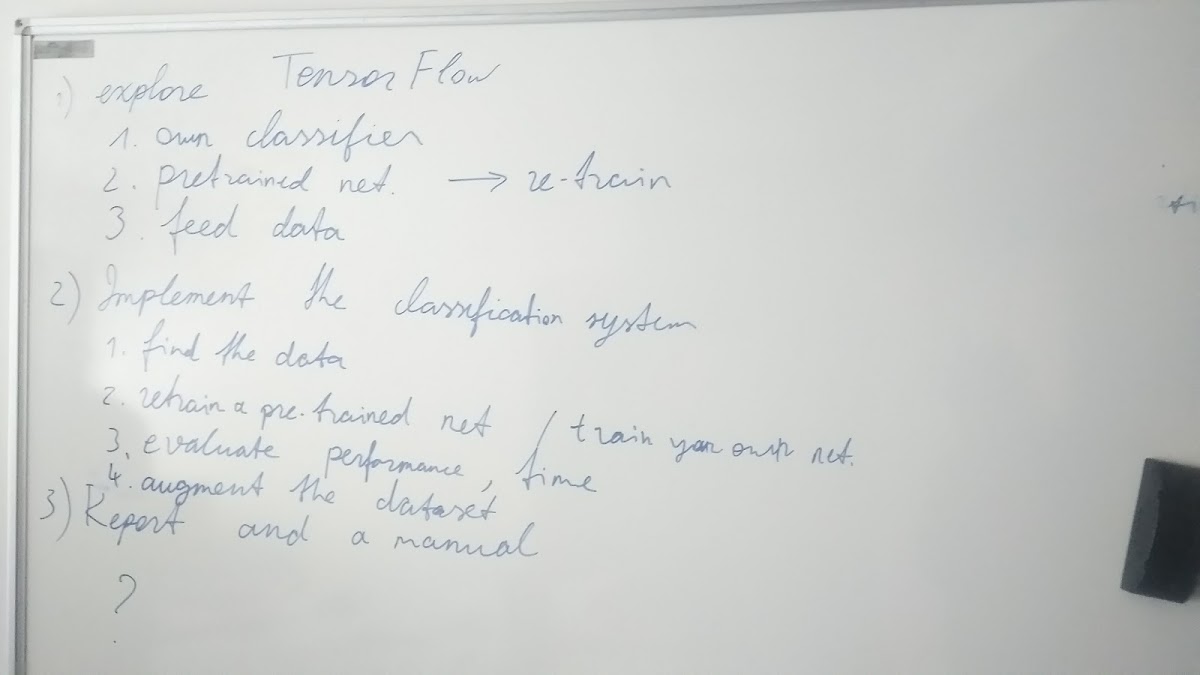 1) explore TensorFlow
1. own classifier
2. pretrained net. → re-train
3. feed data
2) Implement the classification system
1. find the data
2. retrain a pre-trained net / train your own net.
3. evaluate performance, time
4. augment the dataset
3) Report and a manual
?